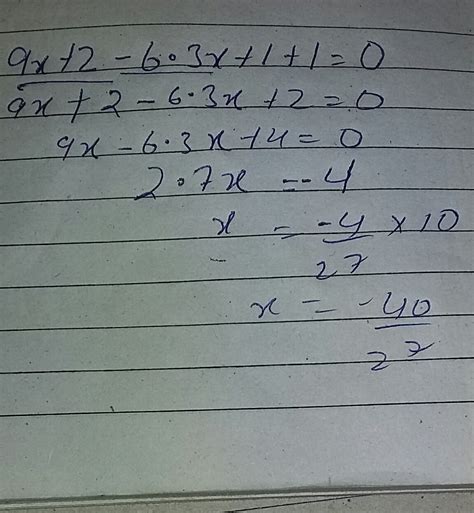 9x+2-6·3x+1+1=0
9x+2-6·3x+2=0
9x-6·3x+4=0
2·7x=-4
x = -4/27 × 10
x = -40/27